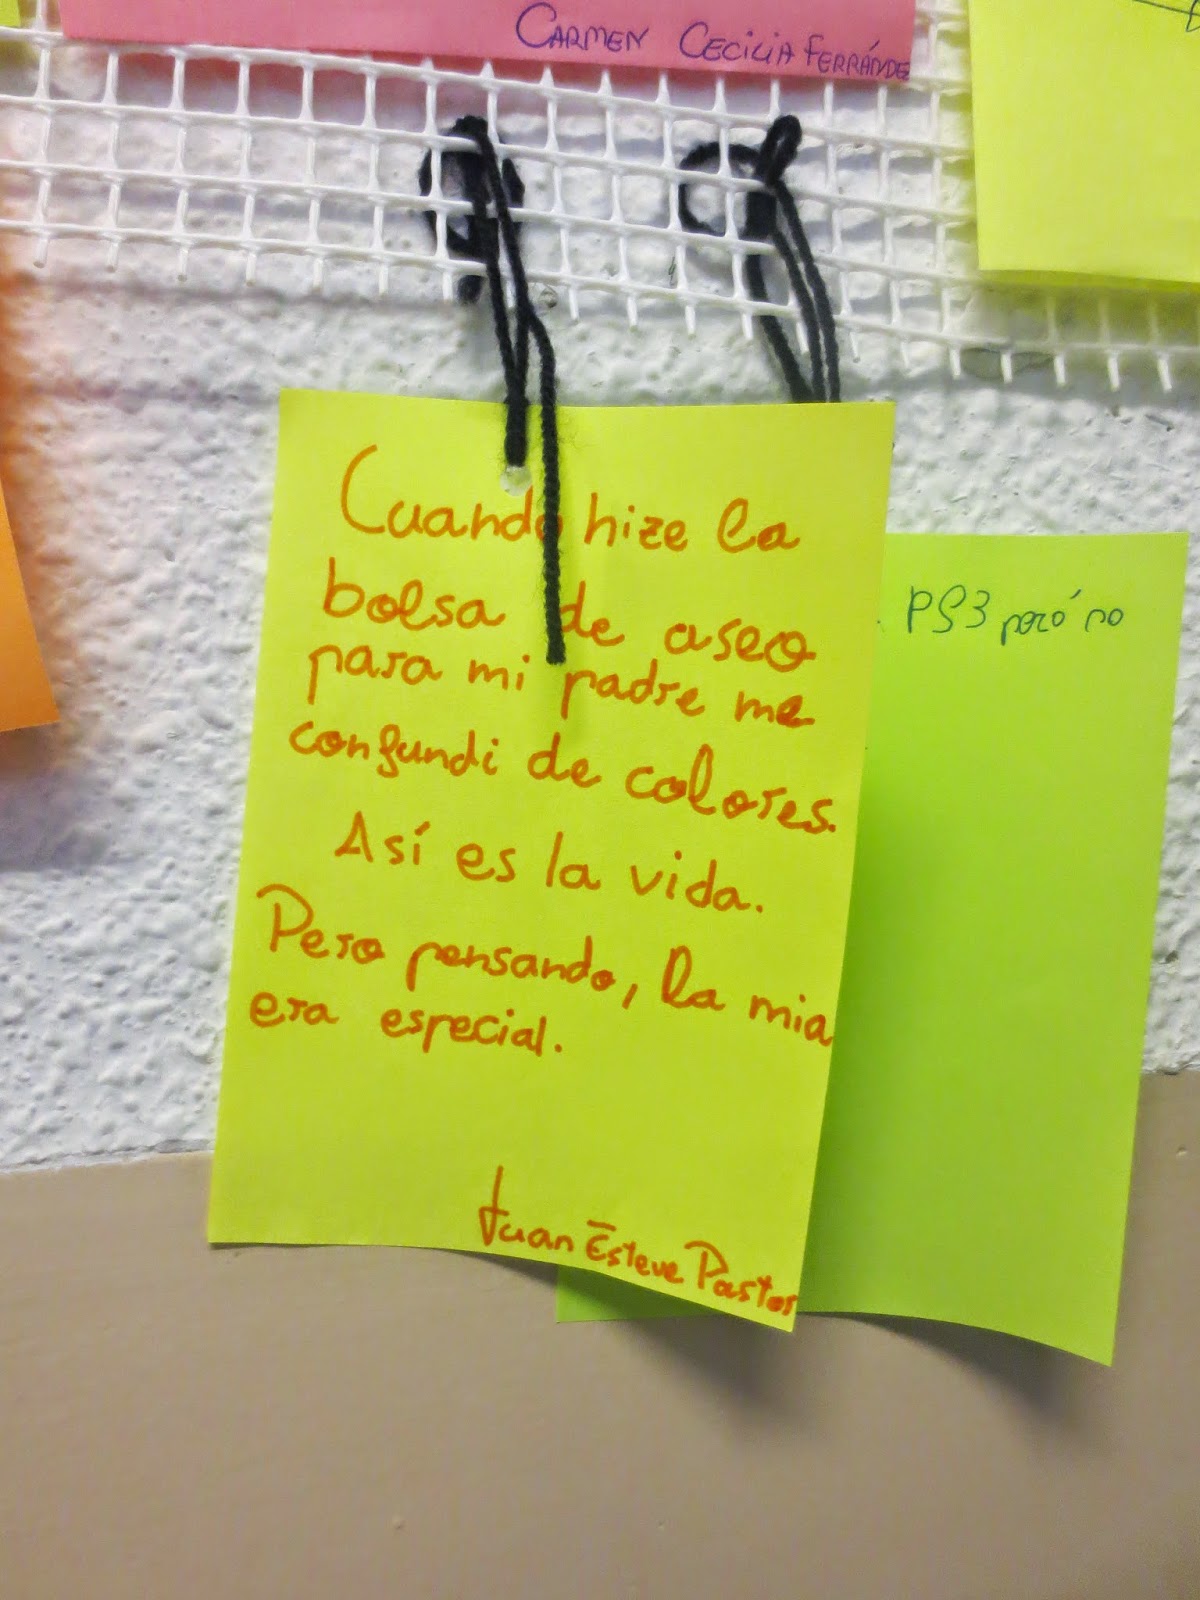 CARMEN CECILIA FERRÁNDE
Cuando hize la
bolsa de aseo
para mi padre me
confundi de colores.
Así es la vida.
Pero pensando, la mia
era especial.
Juan Esteve Pastor
PS3 peró no